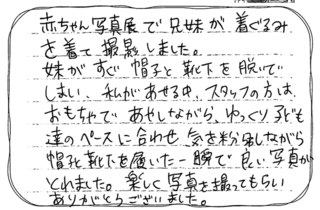 赤ちゃん写真展で兄妹が着ぐるみ
を着て撮影しました。
妹がすぐ帽子と靴下を脱いで
しまい、私があせる中、スタッフの方は、
おもちゃであやしながら、ゆっくり子ども
達のペースに合わせ、気を紛らしながら
帽子と靴下を履いた一瞬で良い写真が
とれました。楽しく写真を撮ってもらい
ありがとうございました。